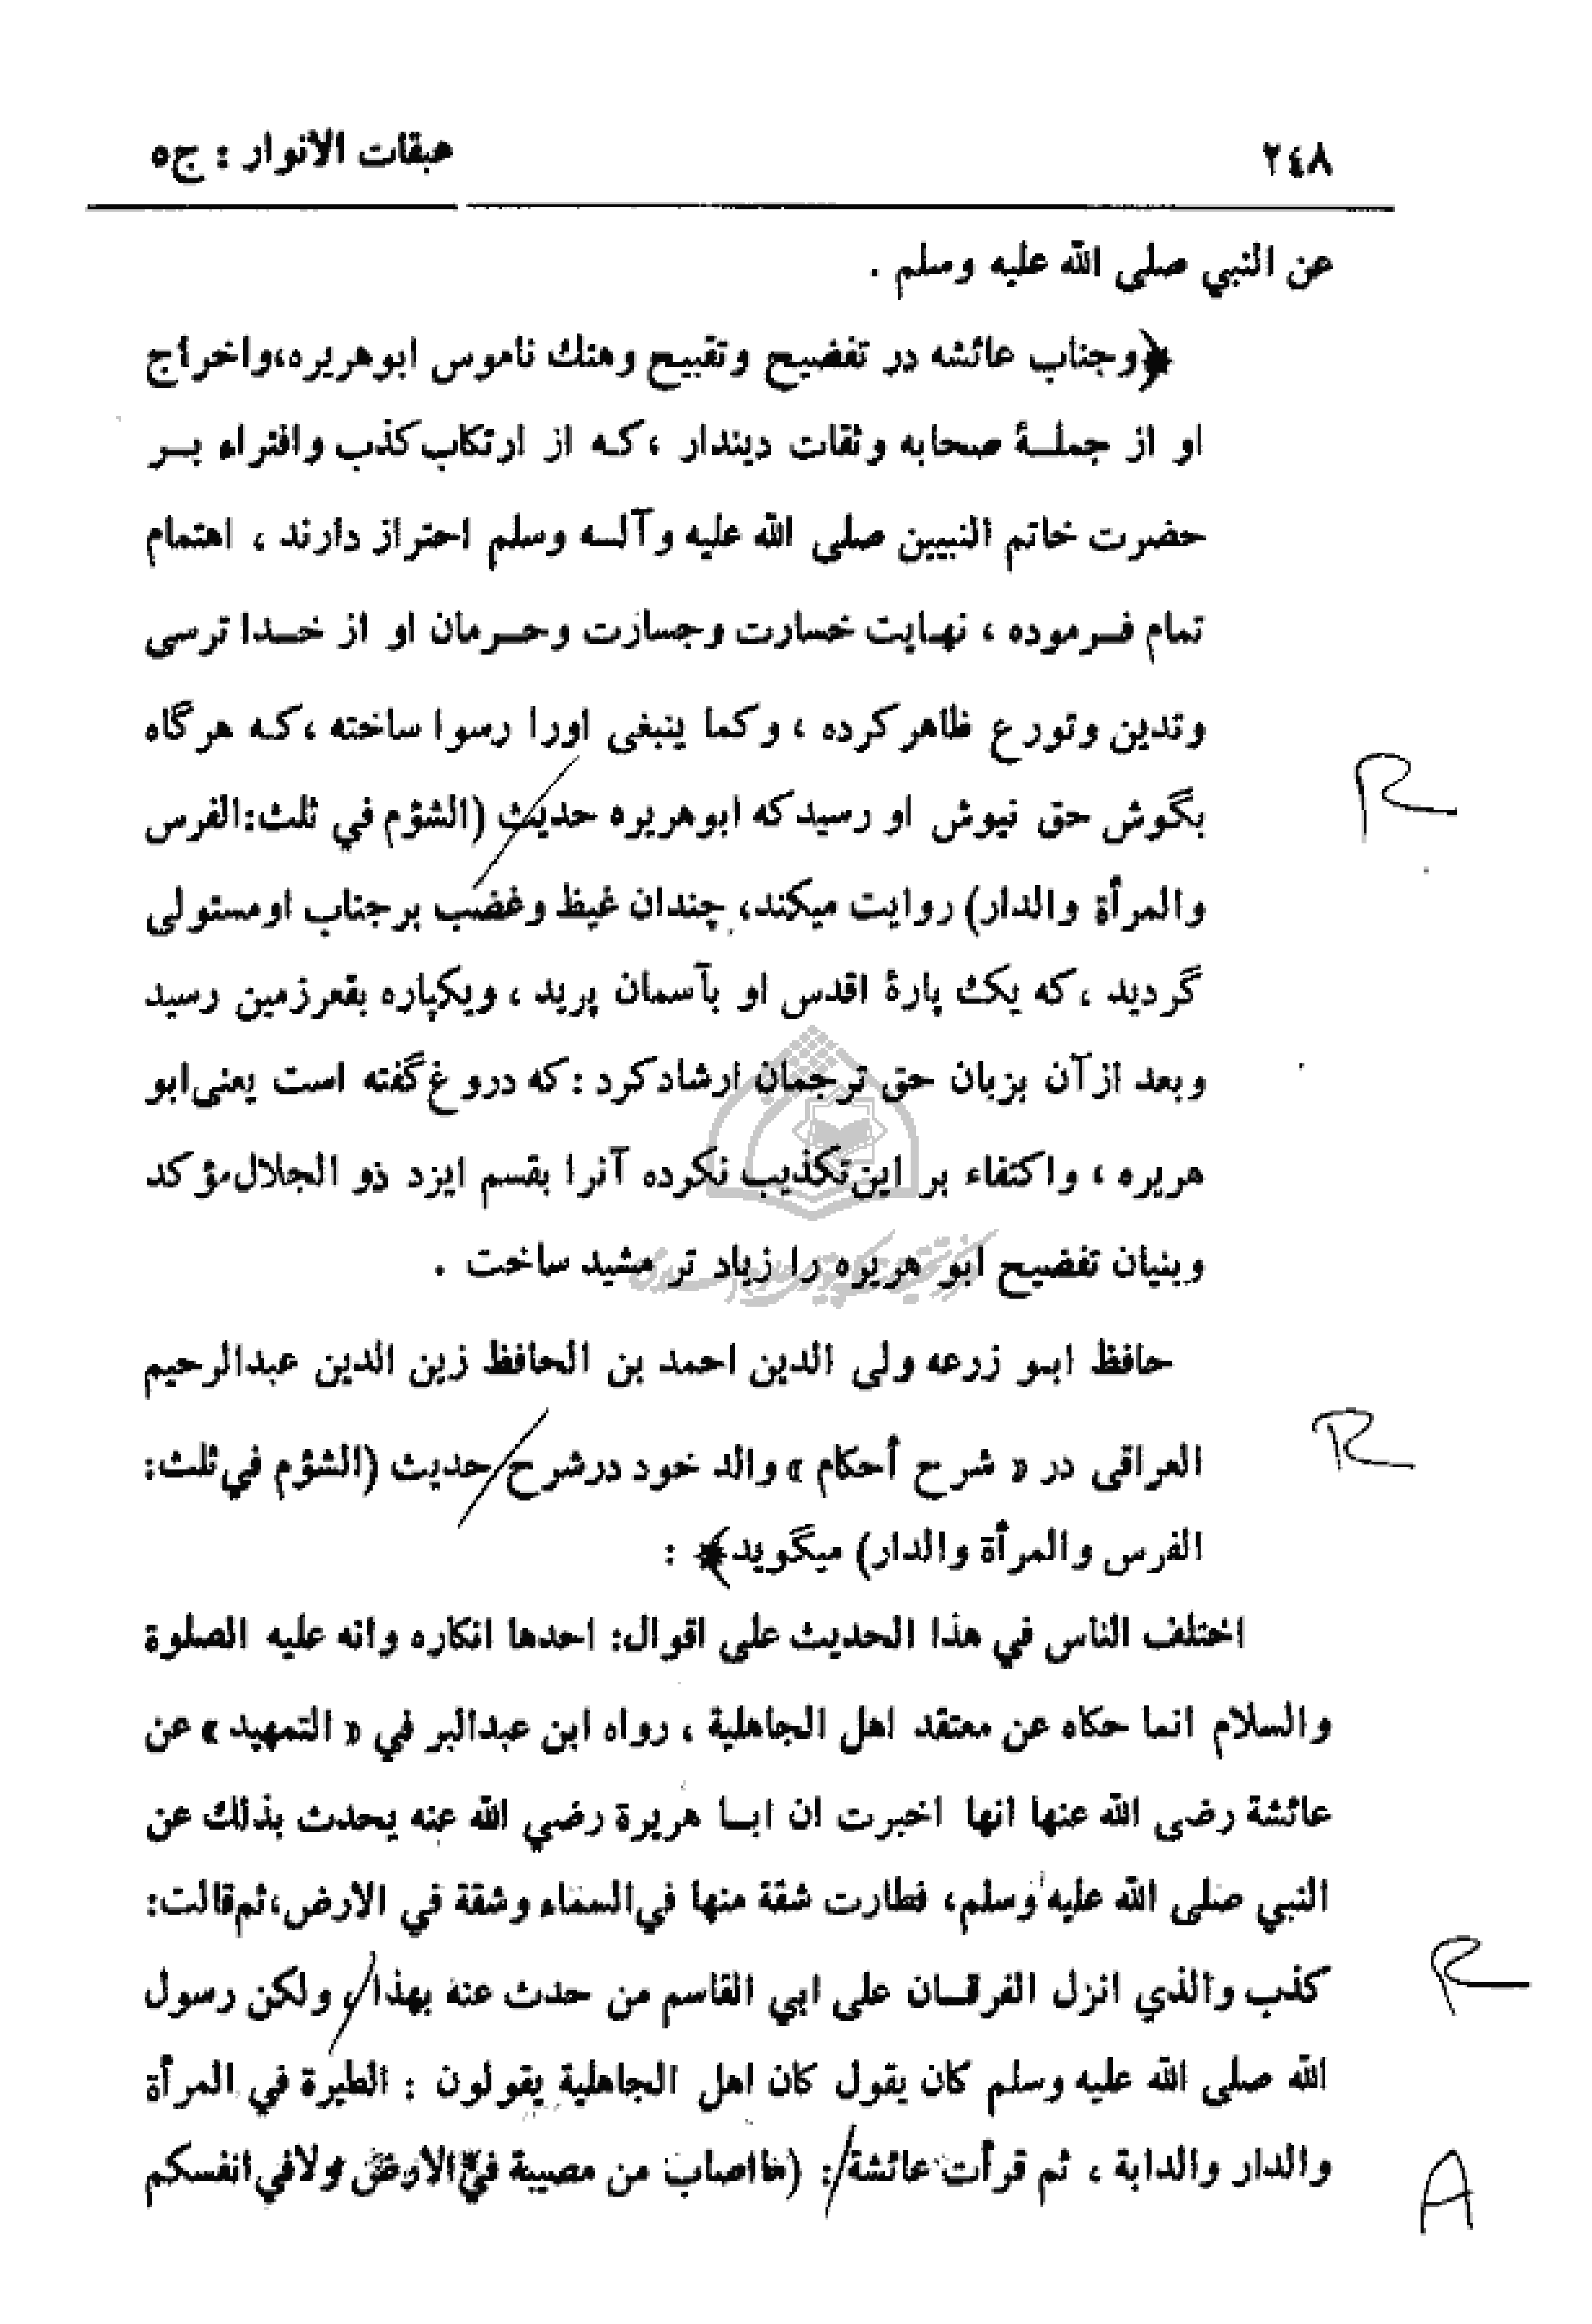 ٢٤٨
عبقات الانوار : ج٥
عن النبي صلى الله عليه وسلم .
﴿وجناب عائشه در تفضيح وتقبيح وهتك ناموس ابوهريره،واخراج
او از جملــۀ صحابه وثقات ديندار ،كـه از ارتكاب كذب وافتراء بــر
حضرت خاتم النبيين صلى الله عليه وآلــه وسلم احتراز دارند ، اهتمام
تمام فــرموده ، نهايت خسارت وجسارت وحــرمان او از خــدا ترسى
وتدين وتورع ظاهركرده ، وكما ينبغى اورا رسوا ساخته ،كـه هرگاه
بگوش حق نيوش او رسيدكه ابوهريره حديث (الشؤم في ثلث:الفرس
والمرأة والدار) روايت ميكند، چندان غيظ وغضب برجناب اومستولى
گرديد ،كه يك پارۀ اقدس او بآسمان پريد ، ويكپاره بقعرزمين رسيد
وبعد ازآن بزبان حق ترجمان ارشادكرد :كه دروغ گفته است يعنى ابو
هريره ، واكتفاء بر اين تكذيب نكرده آنرا بقسم ايزد ذو الجلال مؤكد
وبنيان تفضيح ابو هريره را زياد تر مشيد ساخت .
حافظ ابـو زرعه ولى الدين احمد بن الحافظ زين الدين عبدالرحيم
العراقى در « شرح أحكام » والد خود درشرح حديث (الشؤم في ثلث:
الفرس والمرأة والدار) ميگويد﴾ :
اختلف الناس في هذا الحديث على اقوال: احدها انكاره وانه عليه الصلوة
والسلام انما حكاه عن معتقد اهل الجاهلية ، رواه ابن عبدالبر في « التمهيد » عن
عائشة رضى الله عنها انها اخبرت ان ابــا هريرة رضي الله عنه يحدث بذلك عن
النبي صلى الله عليه وسلم، فطارت شقة منها في السماء وشقة في الارض،ثم قالت:
كذب والذي انزل الفرقــان على ابي القاسم من حدث عنه بهذا ، ولكن رسول
الله صلى الله عليه وسلم كان يقول كان اهل الجاهلية يقولون : الطيرة في المرأة
والدار والدابة ، ثم قرأت عائشة : (ما اصاب من مصيبة في الارض ولا في انفسكم
R
R
R
A